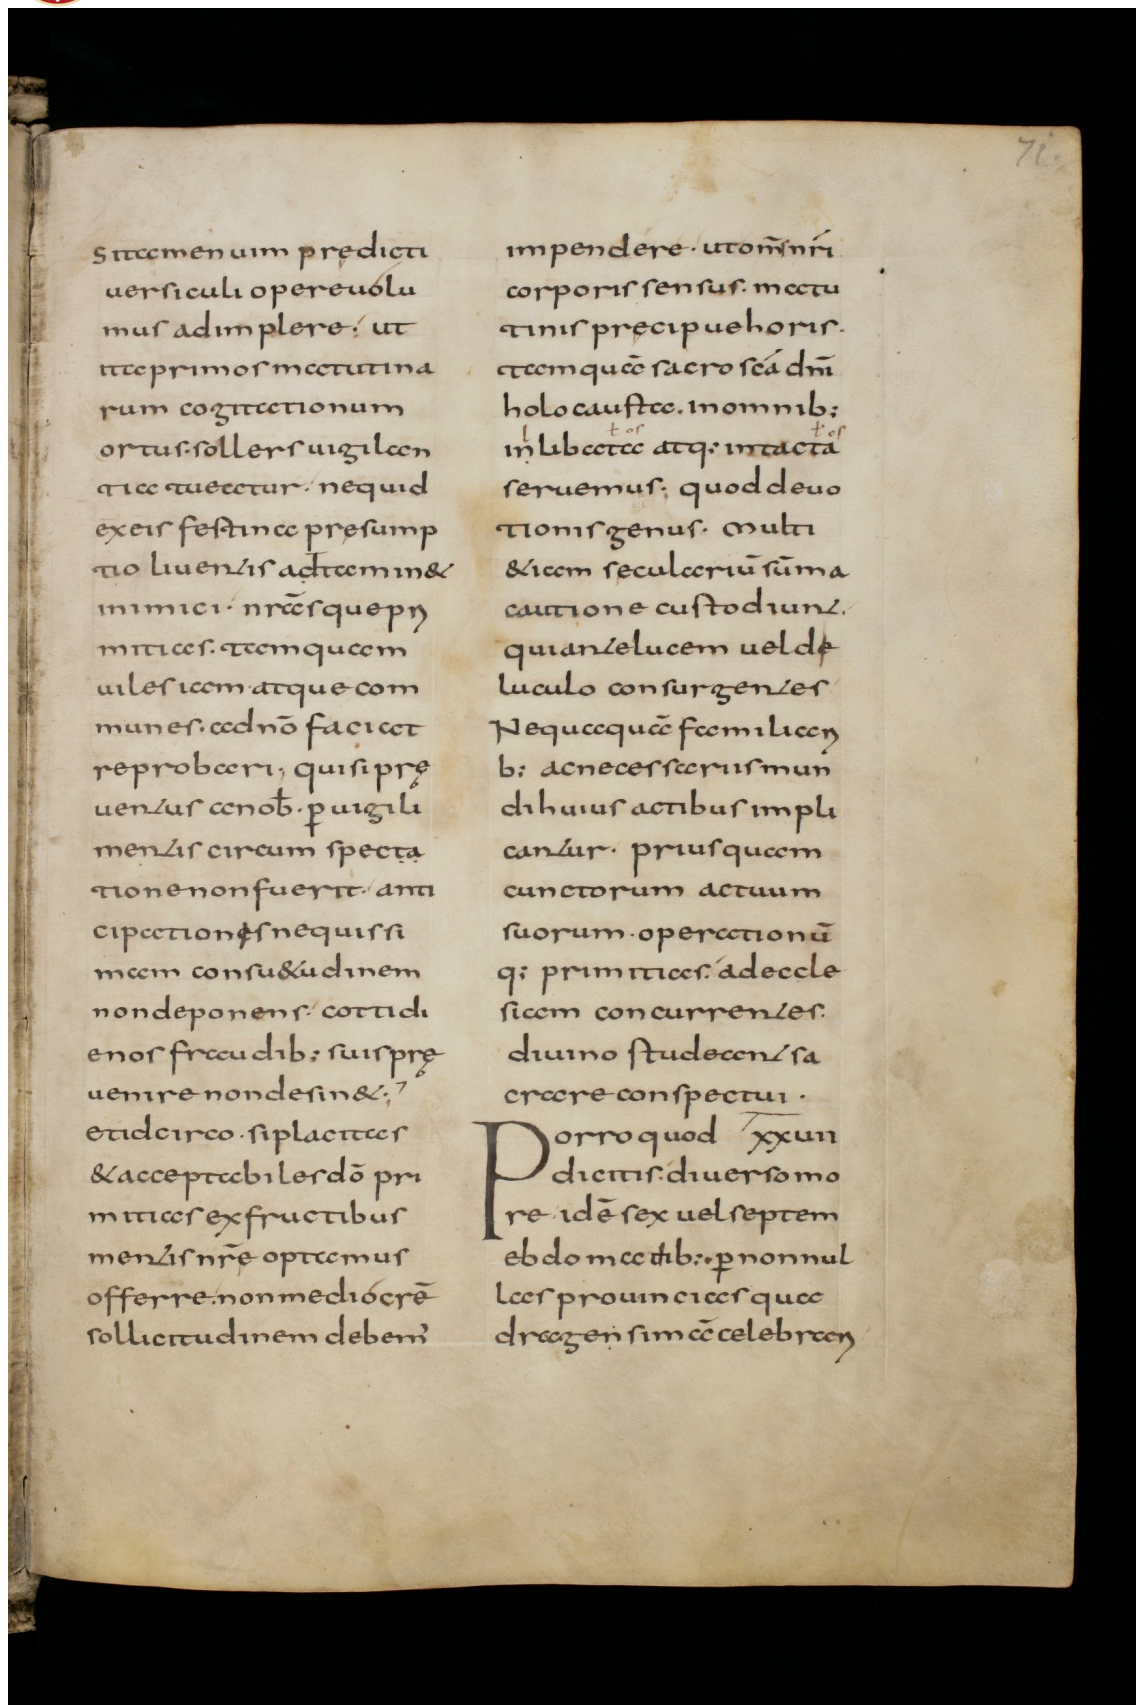 71.
sitamen uim prędicti
uersiculi opere uolu
mus adimplere; ut
ita primos matutina
rum cogitationum
ortus. sollers uigilan
tia tueatur. nequid
ex eis festina presump
tio liuentis adtamin&
inimici. nrās que pri
mitias. tamquam
uiles iam atque com
munes. ad nō faciat
reprobari; qui si prę
uentus a nob̄. ꝑ uigili
mentis circum specta
tione non fuerit. anti
cipationes nequissi
mam consu&udinem
non deponens. cottidi
enos fraudib; suis prę
uenire non desin&;
et idcirco. si placitas
& acceptabiles dō pri
mitias ex fructibus
mentis nrē optamus
offerre. non mediocrē
sollicitudinem debem'
impendere. ut om̄s nr̄i
corporis sensus. matu
tinis pręcipue horis.
tamquā sacro scā dn̄i
holocausta. in omnib;
ł os ł os
inlibata atq; intacta
seruemus; quod deuo
tionis genus. multi
&iam seculariū sūma
cautione custodiunt.
qui ante lucem uel de
luculo consurgentes
Nequaquā familiari
b; ac necessariis mun
di huius actibus impli
cantur. priusquam
cunctorum actuum
suorum. operationū
q; primitias. ad eccle
siam concurrentes.
diuino studeant sa
crare conspectui.
Porro quod xxuii
dicitis. diuerso mo
re idē sex uel septem
ebdomadib; ꝑ nonnul
las prouincias qua
dragensimā celebrari